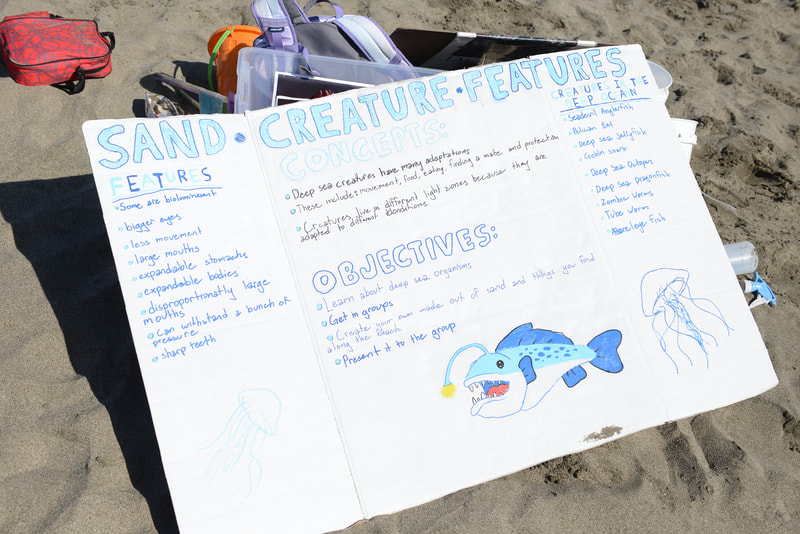 SAND • CREATURE FEATURES
FEATURES
Some are bioluminesent
bigger eyes
less movement
large mouths
expandable stomachs
expandable bodies
disproportionatly large
mouths
Can withstand a bunch of
pressure
sharp teeth
CONCEPTS:
Deep sea creatures have many adaptations
These include: movement, food, eating, finding a mate and protection
Creatures live in different light zones because they are
adapted to different conditions.
OBJECTIVES:
Learn about deep sea organisms
Get in groups
Create your own made out of sand and things you find
along the beach
Present it to the group
CREATURES IN THE
DEEP
Seadevil Anglerfish
Pelican Eel
Deep Sea Jellyfish
Goblin shark
Deep Sea Octopus
Deep Sea Dragonfish
Zombie Worms
Tube Worms
fish